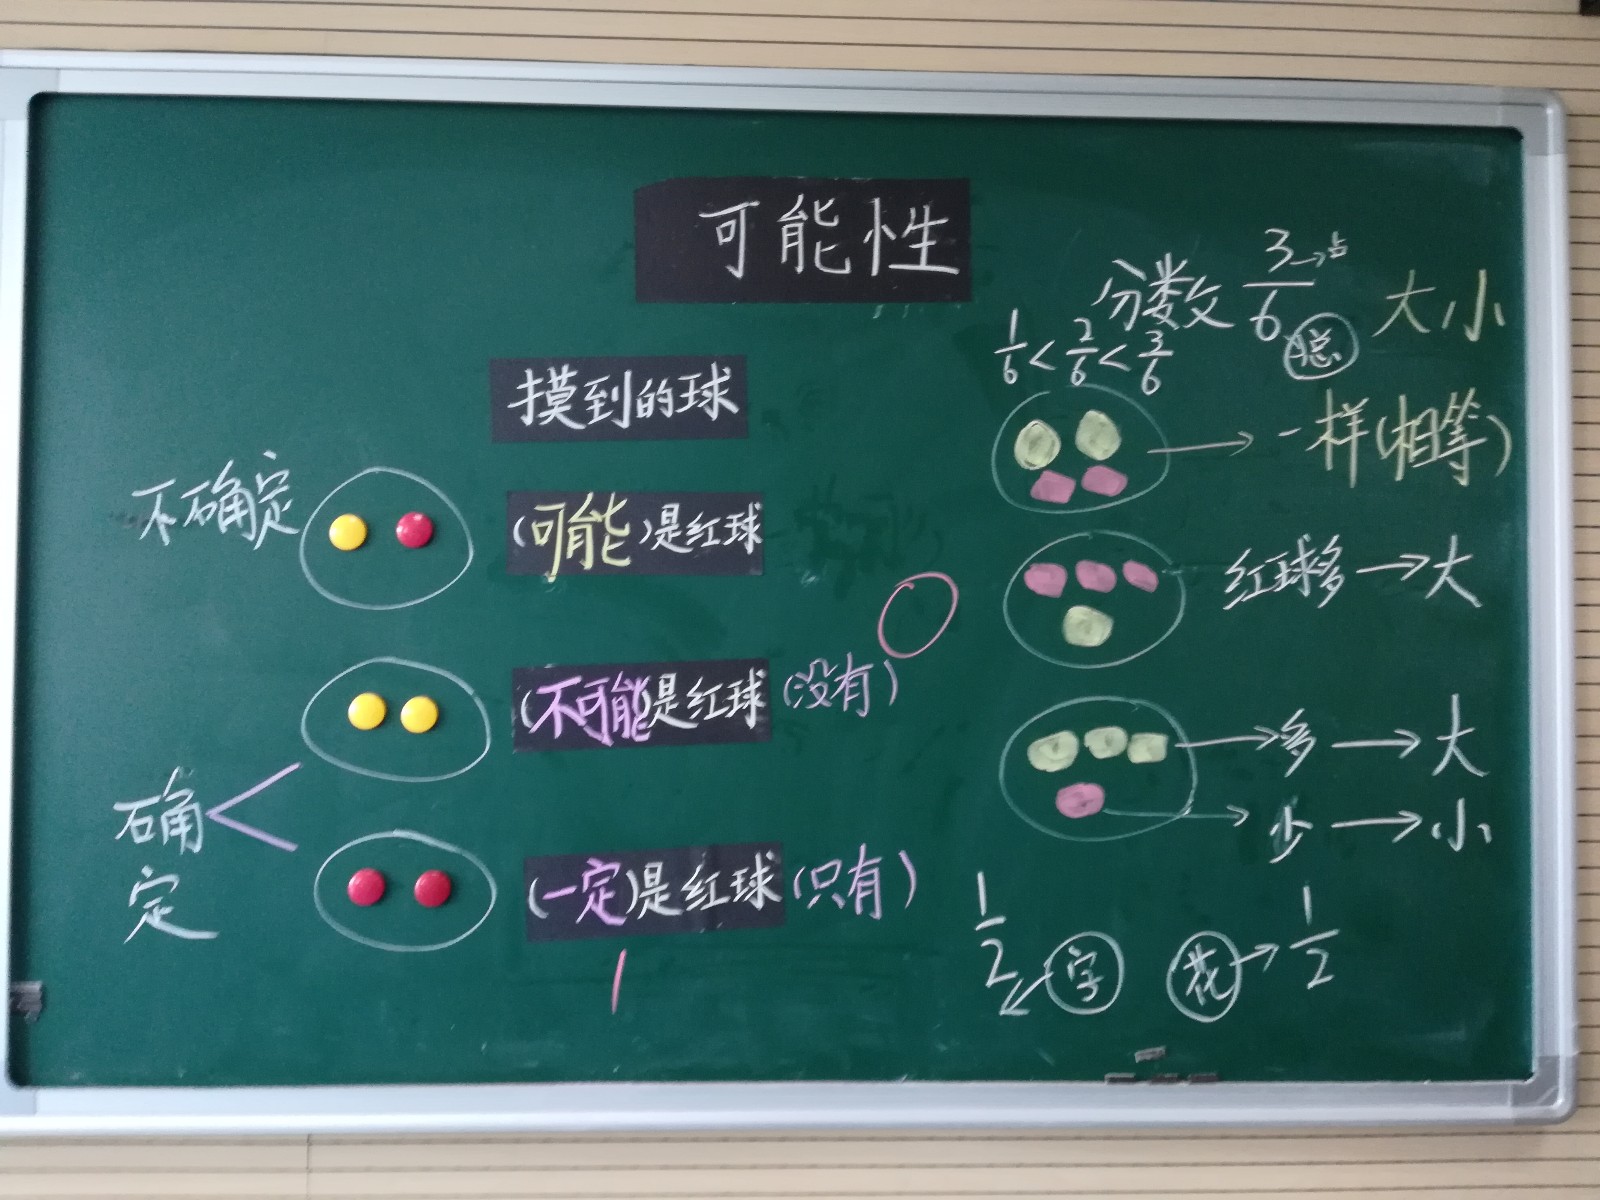 可能性
摸到的球
不确定
(可能)是红球
(不可能)是红球(没有)
确
定
(一定)是红球(只有)
1
分数 3/6 →占 大小
总
1/6<2/6<3/6
一样(相等)
红球多→大
多→大
少→小
1/2 字 花→1/2